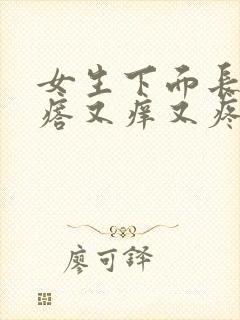 女生下而長
瘩又痒又疼
廖可詳